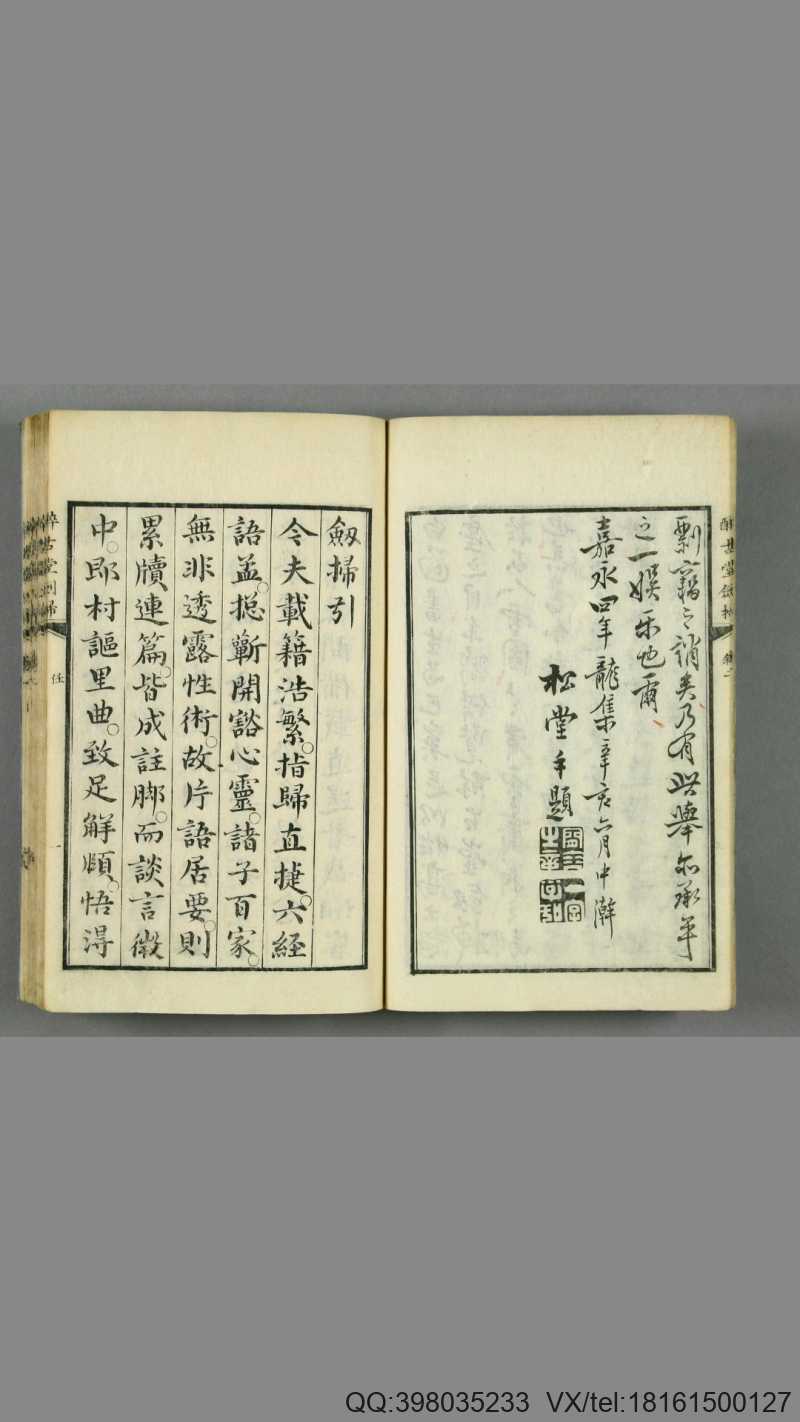 剽竊之誚矣乃有此舉亦承平
之一娛樂也爾
嘉永四年龍集辛亥六月中澣
松堂手題
劔掃引
今夫載籍浩繁。指歸直捷。六經
語孟。揔蘄開豁心靈。諸子百家。
無非透露性術。故片語居要。則
累牘連篇。皆成註脚。而談言微
中。即村謳里曲。致足解頤。悟淂
醉古堂劍掃
QQ:398035233 VX/tel:18161500127